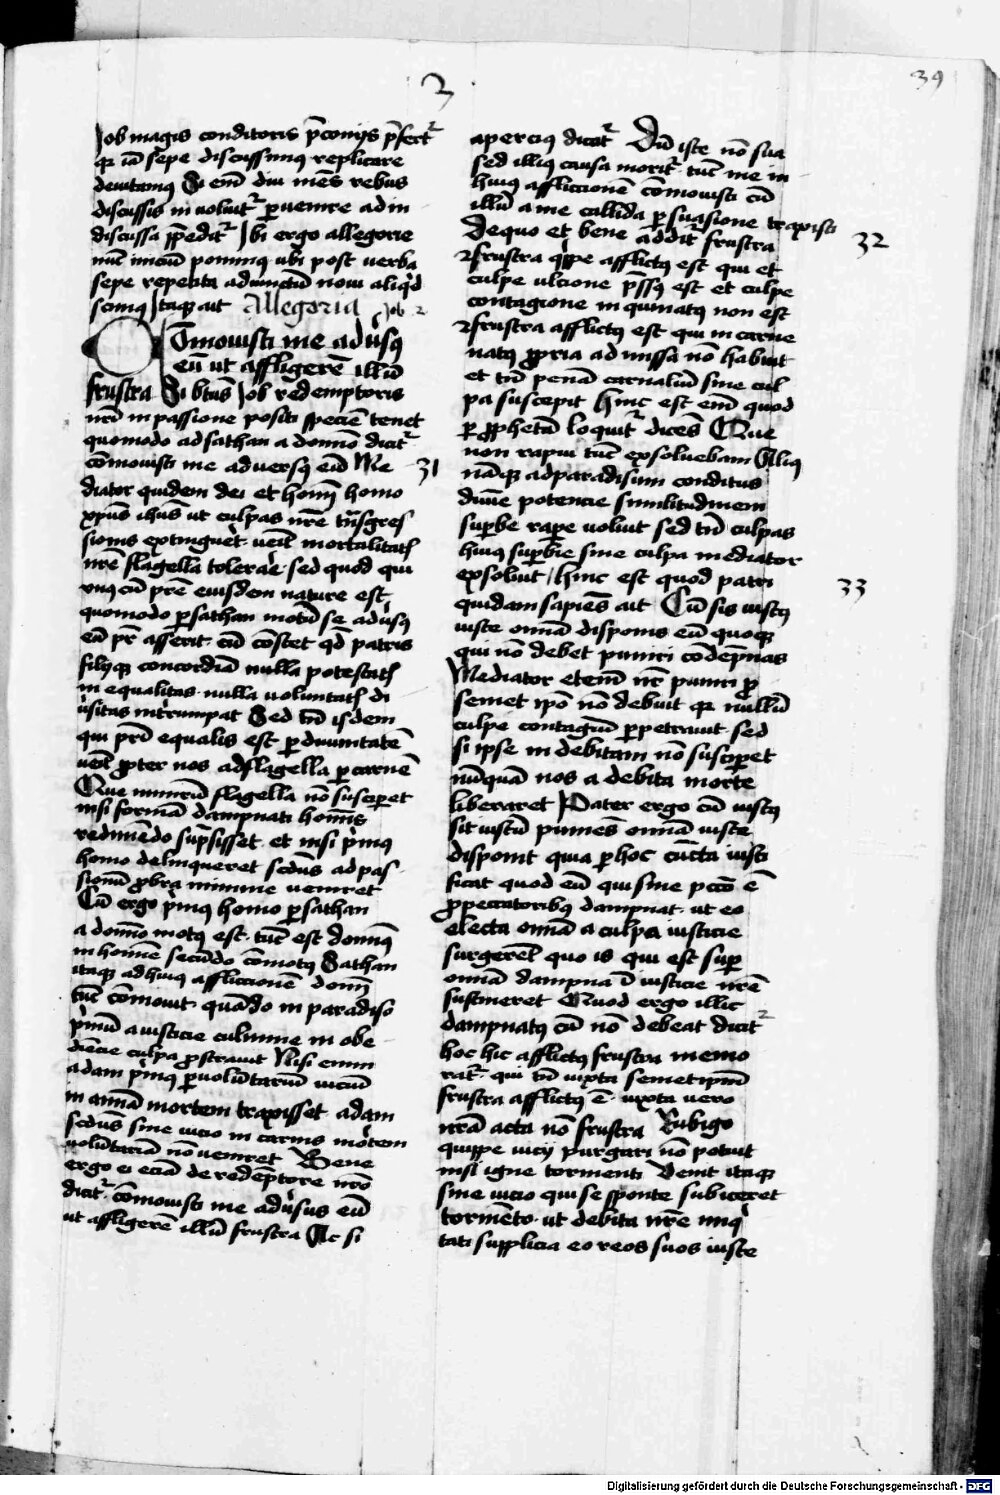 3
39
Job magis conditoris p̄conijs p̄fert᷑
qr iā sepe discussimus replicare
deuitamus Si em̄ diu mēs rebus
discussis inuoluit᷑ ꝑuenire ad in
discussa p̄pedit᷑ Ibi ergo allegorie
nūc iniciū ponimꝰ ubi post verba
sepe repetita adiunctū noui aliqͥd
scimꝰ Itaqꝫ ait Allegoria Job 2
Cōmouisti me adūsꝰ
eū ut affligerē illū
frustra Si btūs Job redemptoris
nrī in passione positi speciē tenet
quomodo ad sathan a domino dicit᷑
cōmouisti me adversꝰ eū Me 31
diator quidem dei et homīn homo
xp̄us ih̄us ut culpas nr̄e trāsgres
sionis extingueret veīt mortalitatꝭ
nr̄e flagella tolerare sed quod qui
vnꝰ cū pr̄e eiusdem nature est
quomodo ꝑ sathan motū se adūsꝰ
eū pr̄ asserit cū cōstet qd patris
filijqꝫ concordiā nulla potestatꝭ
inequalitas nulla voluntatꝭ di
ūsitas intrumpat Sed tn̄ isdem
qui prī equalis est ꝑ diuinitatē
veīt ꝓpter nos ad flagella ꝑ carnē
Que nimirū flagella nō susciperet
nisi formā dampnati hominis
redimēdo sūpsisset et nisi pͥmꝰ
homo delinqueret secdūs ad pas
sionū ꝓbra minime veniret
Cū ergo pͥmꝰ homo ꝑ sathan
a domino motꝰ est tūc est dominꝰ
in homīne secūdo cōmotꝰ Sathan
itaqꝫ ad huiꝰ affliccionē dominū
tūc cōmouit quādo in paradiso
pͥmū a iusticie culmine in obe
diēcie culpa ꝓstrauit Nisi enim
adam pͥmꝰ ꝑ voluntariū viciū
in aīmā mortem traxisset adam
secdūs sine vicio in carnis mortem
voluntariā nō veniret Bene
ergo ei eciā de redēptore nr̄o
dicit᷑ cōmouisti me adūsus eū
ut affligerē illū frustra Ac si
apercius dicat᷑ Dū iste nō sua
sed illius causa morit᷑ tūc me in
huiꝰ affliccionē cōmouisti cū
illū a me callida ꝑsuasione traxisti
De quo et bene addit᷑ frustra 32
frustra qͥppe afflictꝰ est qui et
culpe ulcione p̄ssꝰ est et culpe
contagione inquinatꝰ non est
frustra afflictꝰ est qui in carne
natꝰ ꝓpria admissa nō habuit
et tn̄ penā carnaliū sine cul
pa suscepit Hinc est em̄ quod
ꝑ ꝓphetā loquit᷑ dicēs Que
non rapui tūc exsoluebam Aliꝰ
nāqꝫ ad paradisum conditus
diuine potencie similitudinem
suꝑbe rapere voluit sed tn̄ culpas
huiꝰ suꝑbie sine culpa mediator
exsoluit Hinc est quod patri
quidam sapiēs ait Cū sis iustꝰ 33
iuste omīa disponis eū quoqꝫ
qui nō debet puniri cōdēpnas
Mediator etenī nr̄ puniri ꝓ
semet ipō nō debuit qr nullū
culpe contagiū ꝑpetrauit sed
si ipse indebitam nō susciperet
nūquā nos a debita morte
liberaret Pater ergo cū iustꝰ
sit iustū puniēs omīa iuste
disponit quia ꝑ hoc cūcta iusti
ficat quod eū qui sine pctō ē
ꝓ peccatoribꝰ dampnat ut eo
electa omīa a culpa iusticie
surgerēt quo is qui est suꝑ
omīa dampna īiusticie nr̄e
sustineret Quod ergo illic
dampnatꝰ cū nō debeat dicit᷑
hoc hic afflictꝰ frustra memo
rat᷑ qui tn̄ iuxta semetipm̄
frustra afflictꝰ ē iuxta vero
nr̄a acta nō frustra Rubigo
quippe vicij purgari nō potuit
nisi igne tormenti Venit itaqꝫ
sine vicio qui se sponte subiceret
tormēto ut debita nr̄e iniqͥ
tati supplicia eo reos suos iuste
Digitalisierung gefördert durch die Deutsche Forschungsgemeinschaft - DFG